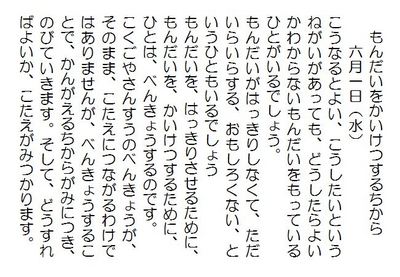 もんだいをかいけつするちから
六月一日（水）
こうなるとよい、こうしたいという
ねがいがあっても、どうしたらよい
かわからないもんだいをもっている
ひとがいるでしょう。
もんだいがはっきりしなくて、ただ
いらいらする、おもしろくない、と
いうひともいるでしょう
もんだいを、はっきりさせるために、
もんだいを、かいけつするために、
ひとは、べんきょうするのです。
こくごやさんすうのべんきょうが、
そのまま、こたえにつながるわけで
はありませんが、べんきょうするこ
とで、かんがえるちからがみにつき、
のびていきます。そして、どうすれ
ばよいか、こたえがみつかります。